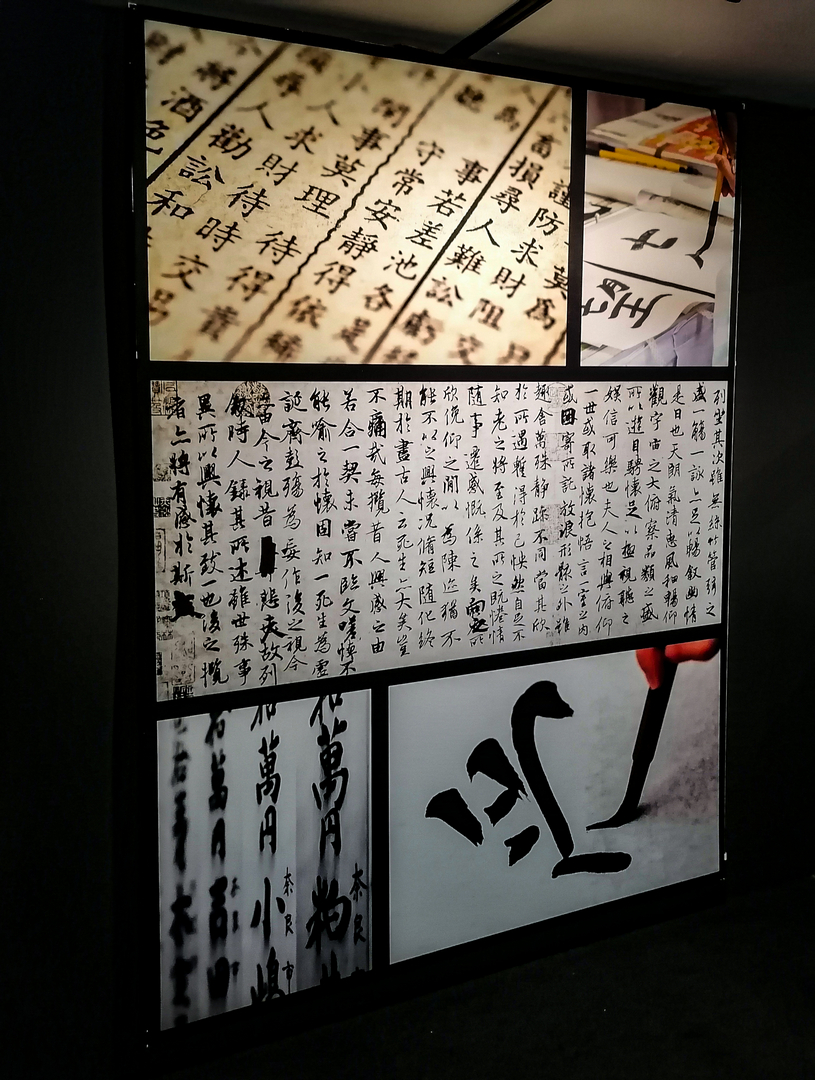 莫為
謹防求財阻交
畜損尋人難訟虧
為事若差池各是
守常安靜得依
事莫理待得貴
人求財待時交易
尋人勸訟和
將酒色
財
列坐其次雖無絲竹管弦之
盛一觴一詠亦足以暢敘幽情
是日也天朗氣清惠風和暢仰
觀宇宙之大俯察品類之盛
所以遊目騁懷足以極視聽之
娛信可樂也夫人之相與俯仰
一世或取諸懷抱悟言一室之內
或因寄所託放浪形骸之外雖
趣舍萬殊靜躁不同當其欣
於所遇暫得於己怏然自足不
知老之將至及其所之既惓情
隨事遷感慨係之矣向之所
欣俛仰之間以為陳跡猶不
能不以之興懷況脩短隨化終
期於盡古人云死生亦大矣豈
不痛哉每攬昔人興感之由
若合一契未嘗不臨文嗟悼不
能喻之於懷固知一死生為虛
誕齊彭殤為妄作後之視今
亦由今之視昔悲夫故列
敘時人錄其所述雖世殊事
異所以興懷其致一也後之攬
者亦將有感於斯文
奈良市
和萬円
奈良市
和萬円小嶋
萬円